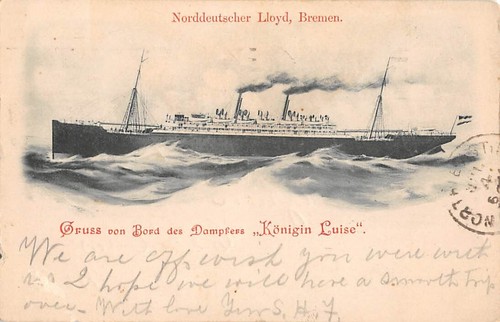 Norddeutscher Lloyd, Bremen.
Gruss von Bord des Dampfers „Königin Luise“.
We are off wish you were with
us I hope we will have a smooth trip
over - With love S. H. F.